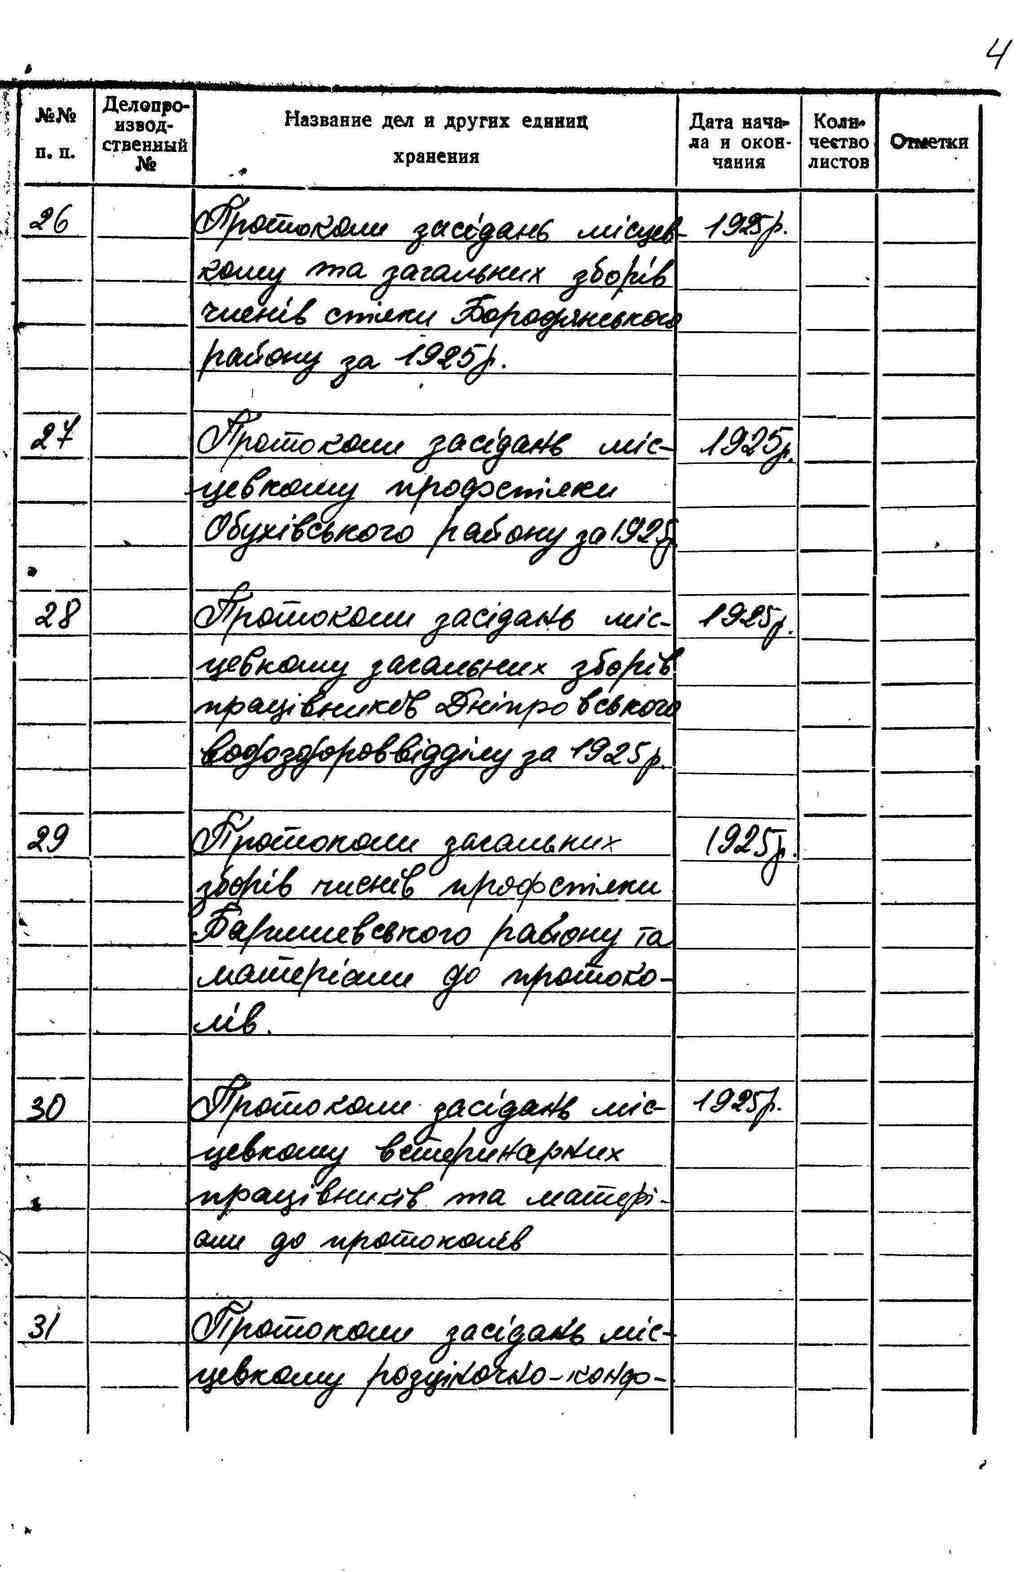 4
№№ п. п.
Делопроизводственный №
Название дел и других единиц хранения
Дата начала и окончания
Количество листов
Отметки
26 Протоколи засідань місцев- 1925р.
кому та загальних зборів
членів спілки Бородянського
району за 1925р.
27 Протоколи засідань міс- 1925р.
цевкому профспілки
Обухівського району за 1925р
28 Протоколи засідань міс- 1925р.
цевкому загальних зборів
працівників Дніпровського
водоздороввідділу за 1925р.
29 Протоколи загальних 1925р.
зборів членів профспілки
Баришевського району та
матеріали до протоко-
лів.
30 Протоколи засідань міс- 1925р.
цевкому ветеринарних
працівників та матері-
али до протоколів
31 Протоколи засідань міс-
цевкому розціночно-конф-